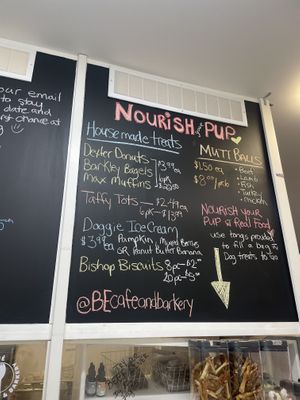 your email
to stay
date and
first chance at
NOURISH PUP
Housemade treats
Dexter Donuts
Barkley Bagels
Max Muffins
$2.99
ea
Taffy Tots — $2.49 ea
6pk — $13.99
Doggie Ice Cream
$3.99 ea Pumpkin, Mixed Berries
or Peanut Butter Banana
Bishop Biscuits 8pc — $2.00
20pc — $5.00
@BEcafeandbarkery
MUTT BALLS
$1.50 ea
$8.00/6pk
• Beef
• Lamb
• Fish
• Turkey
• Chicken
Nourish your
Pup & Real Food
use tongs provided
to fill a bag
Dog treats to Go